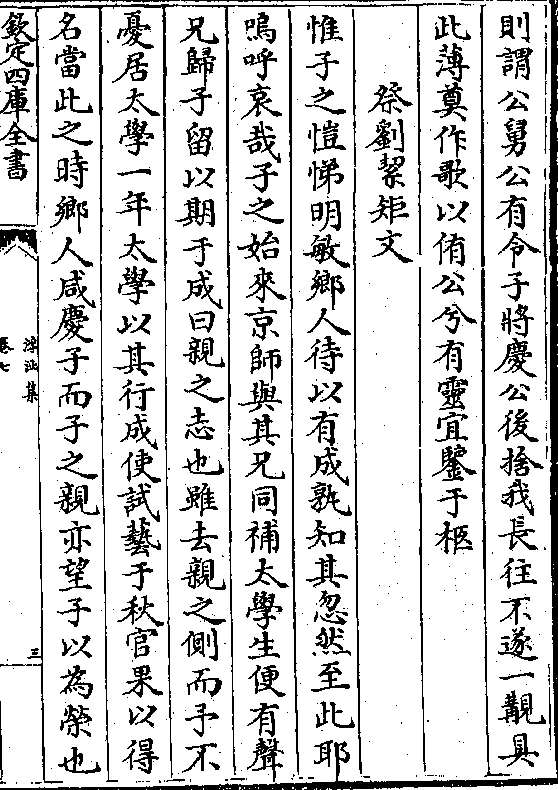 則謂公舅公有令子將慶公後捨我長往不遂一覯具
此薄奠作歌以侑公兮有靈宜鑒于柩
祭劉絜矩文
惟子之愷悌明敏鄉人待以有成孰知其忽然至此耶
嗚呼哀哉子之始來京師與其兄同補太學生便有聲
兄歸子留以期于成曰親之志也雖去親之側而予不
憂居太學一年太學以其行成使試藝于秋官果以得
名當此之時鄉人咸慶子而子之親亦望子以為榮也
欽定四庫全書
浮沚集
卷七
三